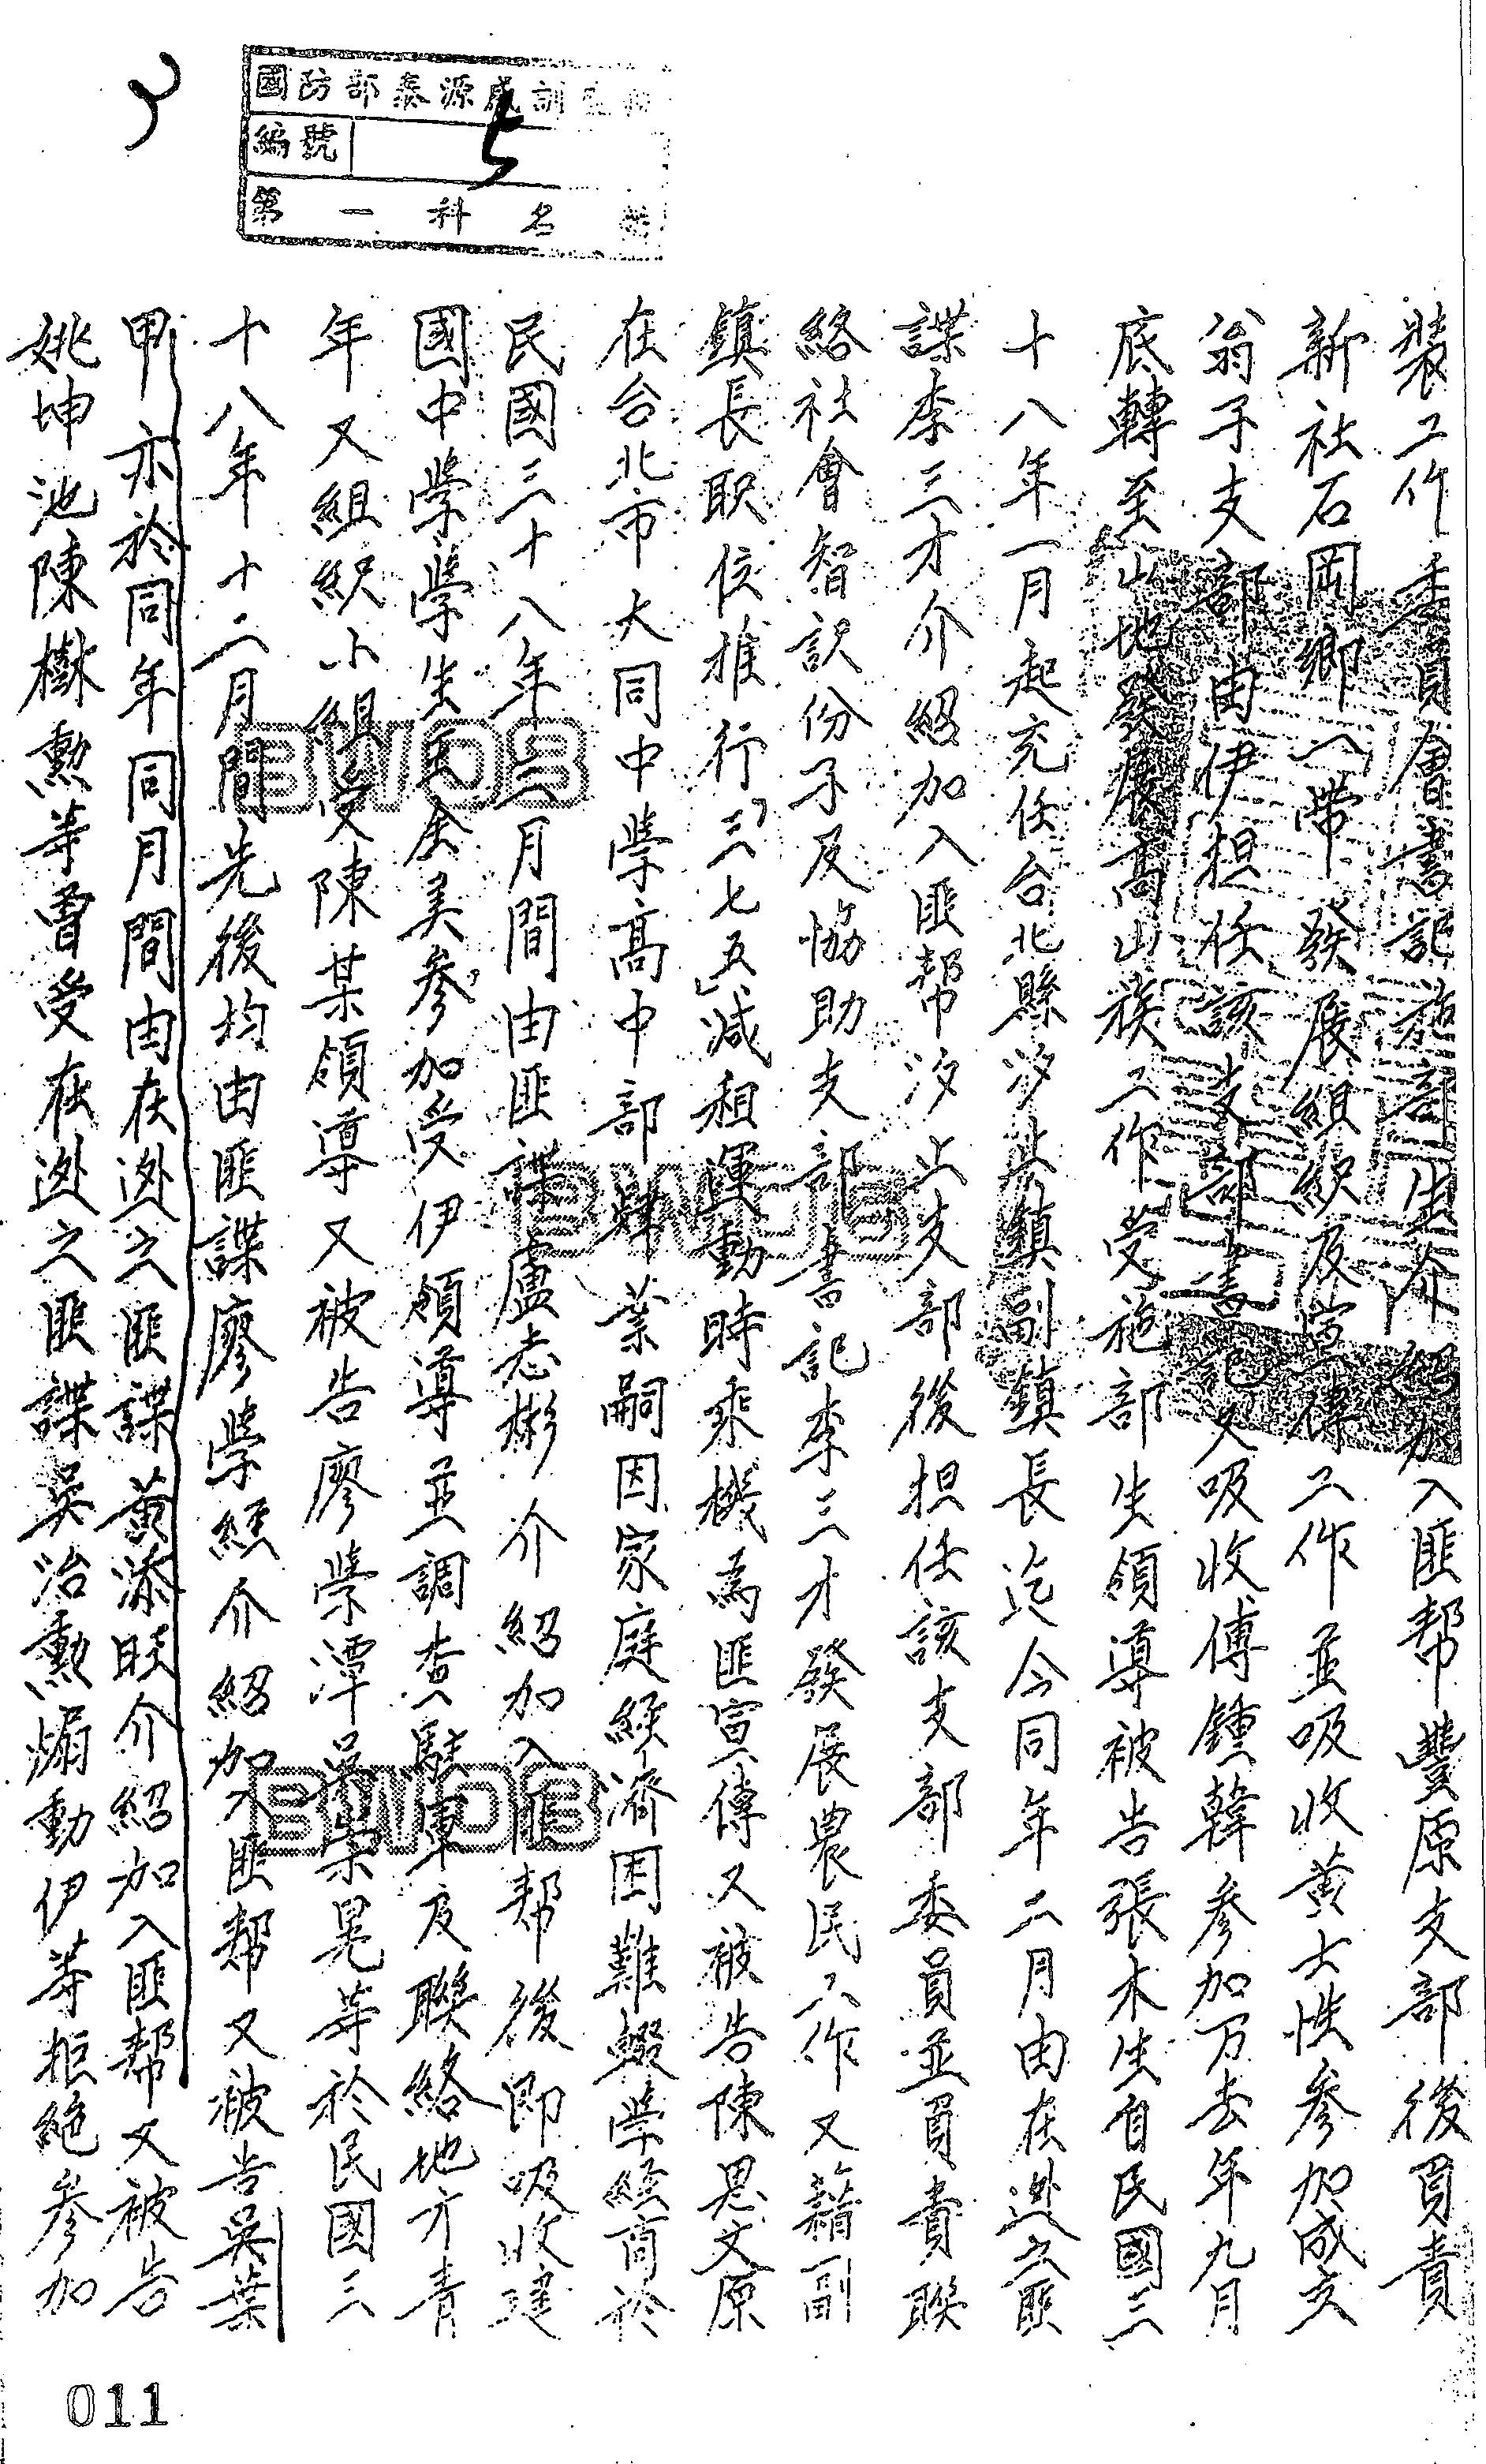 國防部泰源感訓監
編號 5
第一科名
裝工作委員會書記施部生介紹加入匪帮豐原支部後負責
新社石岡鄉一帶發展組織及宣傳工作並吸收黃士性參加成立
翁子支部由伊担任該支部書記又吸收傅鍾韓參加万去年九月
底轉至山地發展高山族工作受施部生領導被告張木生自民國三
十八年一月起充任台北縣汐止鎮副鎮長迄今同年二月由在逃之匪
諜李三才介紹加入匪帮汐止支部後担任該支部委員並負責聯
絡社會智識份子及協助支部書記李三才發展農民工作又藉副
鎮長职位推行「三七五」減租運動時乘機為匪宣傳又被告陳思文原
在台北市大同中學高中部肄業嗣因家庭經濟困難輟學經商於
民國三十八年三月間由匪諜盧志彬介紹加入匪帮後即吸收建
國中學學生王金美參加受伊領導並調查駐軍及聯絡地方青
年又組織小組受陳某領導又被告廖學潭吳崇晃等於民國三
十八年十二月間先後均由匪諜廖學經介紹加入匪帮又被告吳葉
甲亦於同年同月間由在逃之匪諜黃添旺介紹加入匪帮又被告
姚坤池陳樹勲等曾受在逃之匪諜吳治勲煽動伊等拒絕參加
011
BWDB
BWDB
BWDB